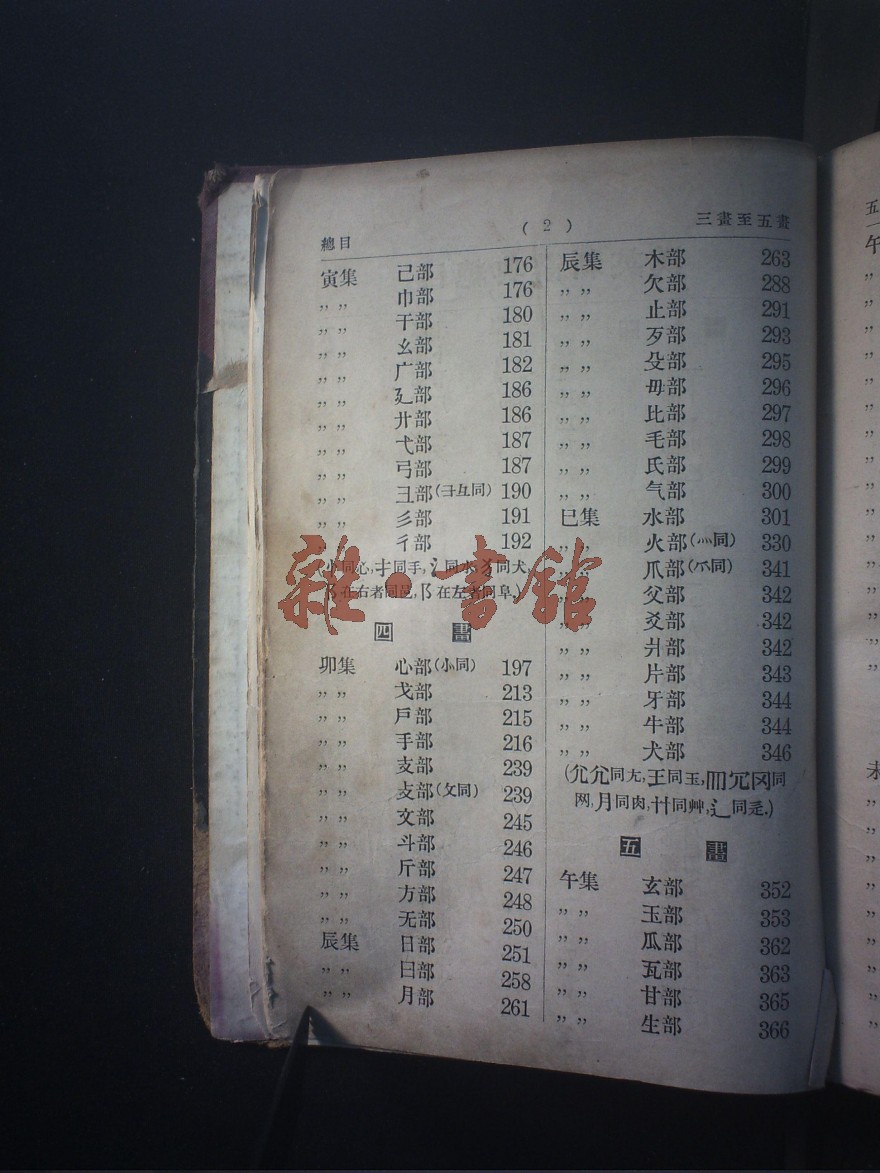 總目
( 2 )
三畫至五畫
寅集 己部 176
,, ,, 巾部 176
,, ,, 干部 180
,, ,, 幺部 181
,, ,, 广部 182
,, ,, 廴部 186
,, ,, 廾部 186
,, ,, 弋部 187
,, ,, 弓部 187
,, ,, 彐部(彑同) 190
,, ,, 彡部 191
,, ,, 彳部 192
(忄同心,扌同手,氵同水,犭同犬,
阝在右者同邑,阝在左者同阜.)
四 畫
卯集 心部(㣺同) 197
,, ,, 戈部 213
,, ,, 戶部 215
,, ,, 手部 216
,, ,, 支部 239
,, ,, 攴部(攵同) 239
,, ,, 文部 245
,, ,, 斗部 246
,, ,, 斤部 247
,, ,, 方部 248
,, ,, 无部 250
辰集 日部 251
,, ,, 曰部 258
,, ,, 月部 261
辰集 木部 263
,, ,, 欠部 288
,, ,, 止部 291
,, ,, 歹部 293
,, ,, 殳部 295
,, ,, 毋部 296
,, ,, 比部 297
,, ,, 毛部 298
,, ,, 氏部 299
,, ,, 气部 300
巳集 水部 301
,, 火部(灬同) 330
,, 爪部(爫同) 341
,, ,, 父部 342
,, ,, 爻部 342
,, ,, 爿部 342
,, ,, 片部 343
,, ,, 牙部 344
,, ,, 牛部 344
,, ,, 犬部 346
(同尢,王同玉,罒冗冈同
网,月同肉,艹同艸,辶同辵.)
五 畫
午集 玄部 352
,, ,, 玉部 353
,, ,, 瓜部 362
,, ,, 瓦部 363
,, ,, 甘部 365
,, ,, 生部 366
雜·書館
五
午
未